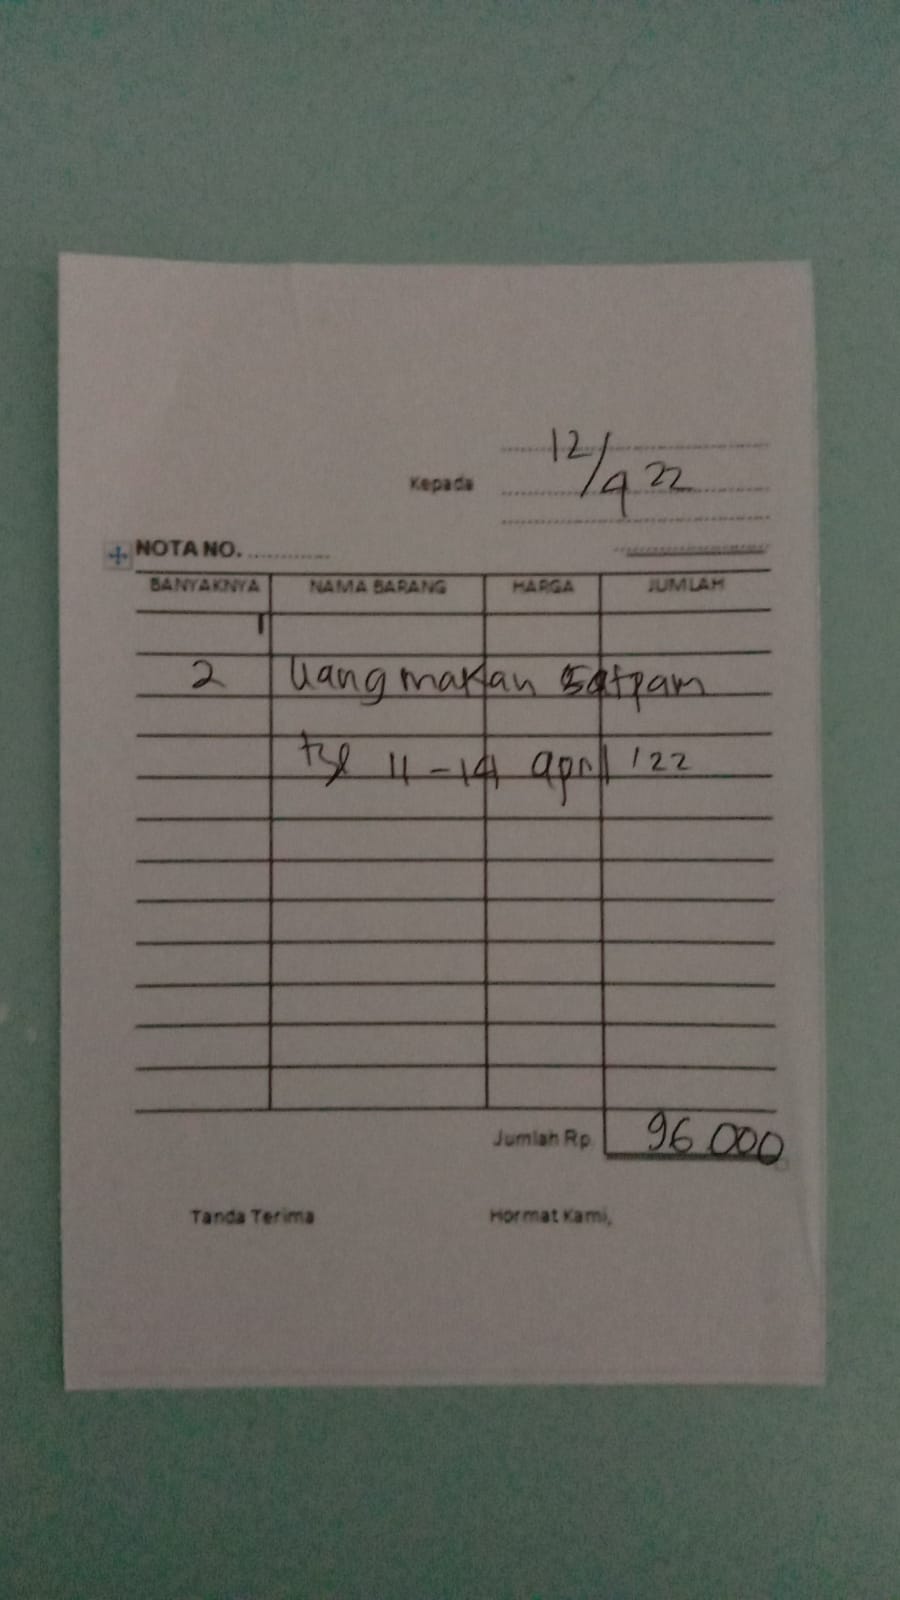 12/4 22
Kepada
NOTA NO. ............
BANYAKNYA NAMA BARANG HARGA JUMLAH
2 Uang makan satpam
tgl 11-14 april '22
Jumlah Rp. 96 000
Tanda Terima Hormat Kami,